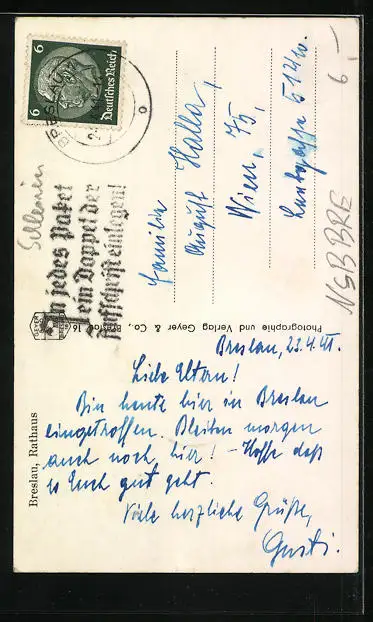 6
6
Deutsches Reich
BRESLAU
In jedes Paket
ein Doppel der
Aufschrift einlegen!
Schlesien
6,—
Familie
August Halla,
Wien, 75,
NSB BRE
Photographie und Verlag Geyer & Co., Breslau 16
Breslau, Rathaus
Breslau, 23.4.41.
Liebe Eltern!
Bin heute hier in Breslau
eingetroffen. Bleiben morgen
auch noch hier! – Hoffe daß
es Euch gut geht.
Viele herzliche Grüße,
Gusti.